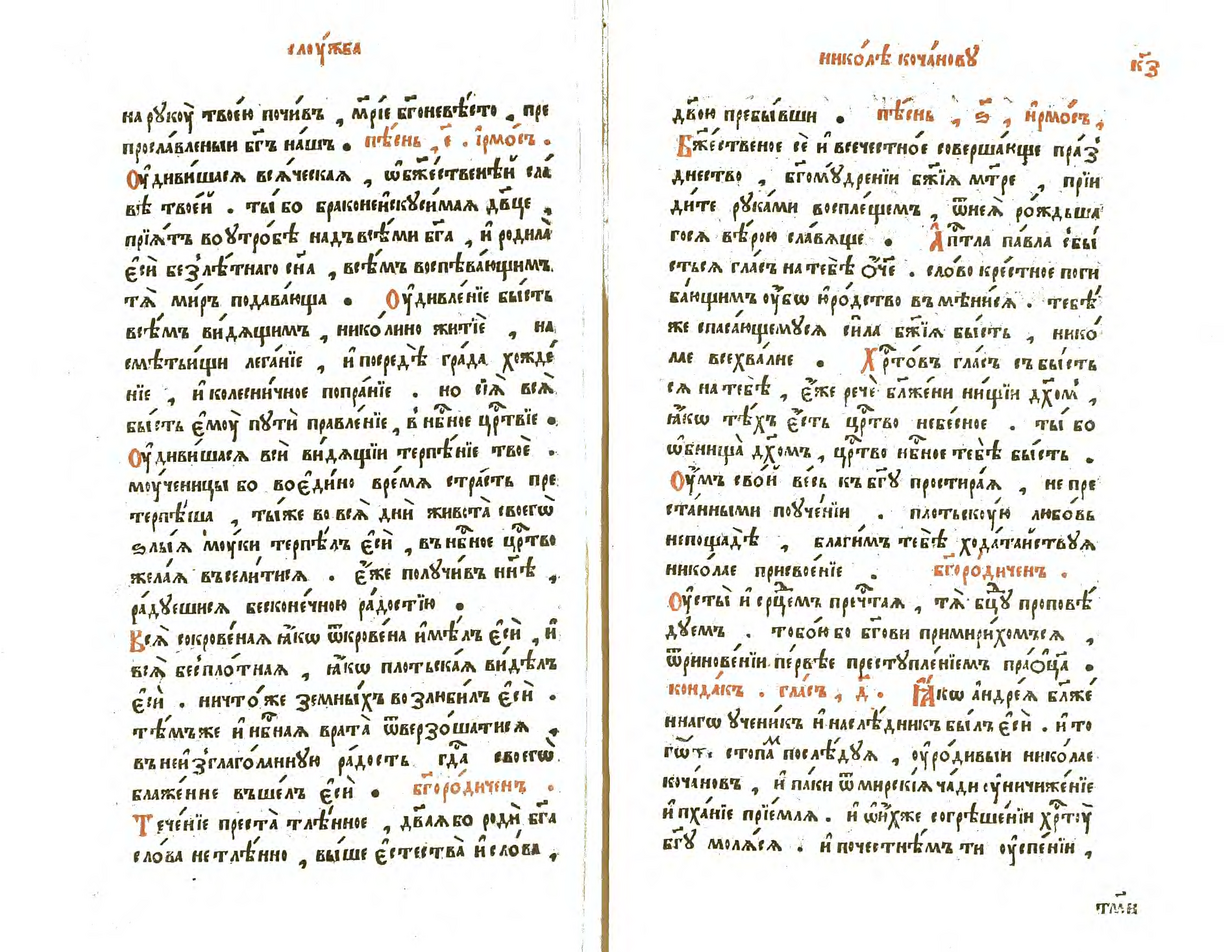 слоу́жба
на рукоу̀ твоею почи́въ , мр҃і́е бг҃оневѣ́сто , пре
просла́вленыи бг҃ъ на́шъ . пѣ́снь , е҃ . і҆рмо́съ .
Оу҆диви́шася вся́ческая , ѡ҆бж҃е́ственѣй сла́
вѣ твое́й . ты̀ бо браконеи҆скуси́мая дв҃це ,
прїя́тъ во утро́бѣ надъ все́ми бг҃а , и҆ родила̀
є҆сѝ безлѣ́тнаго сн҃а , всѣ́мъ воспѣва́ющимъ
тя̀ ми́ръ подава́юща . Оу҆дивле́нїе бы́сть
всѣ́мъ ви́дящимъ , нико́лино житїѐ , на
смѣ́тьищи лега́нїе , и҆ посредѣ̀ гра́да хожде́
нїе , и҆ колесни́чное попра́нїе . но сїя̀ вся̀
бы́сть є҆моу̀ путѝ правле́нїе , в нб҃ное црт҃вїе .
Оу҆диви́шася всѝ ви́дящїи терпѣ́нїе твоѐ .
моу́ченицы бо воє҆ди́но вре́мя стра́сть пре
терпѣ́ша , ты́же во вся̀ дни̑ живота̀ своегѡ̀
ѕлы́я мо́уки терпѣ́лъ є҆сѝ , въ нб҃ное црт҃во
жела́я въсели́тися . є҆́же получи́в нн҃ѣ ,
ра́дуешися бесконе́чною ра́достїю .
Вся̀ сокрове́ная ꙗ҆́кѡ ѿкрове́на и҆мѣ́лъ є҆сѝ , и҆
вся̀ беспло́тная , ꙗ҆́кѡ пло́тьская ви́дѣлъ
є҆сѝ . ничто́же земны́хъ возлюби́лъ є҆сѝ .
тѣ́мъже и҆ нб҃ная врата̀ ѿверзо́шатися ,
въ неи҆зглаго́ланную ра́дость гд҃а своегѡ̀
блаже́нне въше́лъ є҆сѝ . бг҃оро́диченъ .
Тече́нїе преста̀ тлѣ́нное , дв҃ая бо родѝ бг҃а
сло́ва нетлѣ́нно , вы́ше є҆стества̀ и҆ сло́ва ,
нико́лѣ коча́нову
к҃з
дв҃ою пребы́вши . пѣ́снь , ѕ҃ , и҆рмо́съ ,
Бж҃е́ственое сѐ и҆ всече́стное соверша́юще пра́з
днество , бг҃ому́дренїи бж҃їя мт҃ре , прїи
ди́те рука́ми воспле́щемъ , ѿнея̀ ро́ждьша
гося вѣ́рою сла́вяще . А҆пт҃ла па́вла сбы́
сться гла́съ на тебѣ̀ о҆́ч҃е . сло́во кре́стное поги
ба́ющимъ оу҆́бѡ ю҆ро́дство въ мѣ́нися . тебѣ́
же спаса́ющемуся си́ла бж҃їя бы́сть , нико́
лае всехва́лне . Хрт҃о́въ гла́съ съ бы́сть
ся на тебѣ̀ , є҆́же речѐ бл҃же́ни ни́щїи дх҃омъ ,
ꙗ҆́кѡ тѣ́хъ є҆́сть црт҃во небе́сное . ты́ бо
ѡ҆бнища̀ дх҃омъ , црт҃во нб҃ное тебѣ̀ бы́сть .
Оу҆́мъ сво́й весь къ бг҃у простира́я , не пре
ста́нными поуче́нїи . пло́тьскоую любо́вь
непощадѣ̀ , благи́мъ тебѣ̀ хода́тайствуя
нико́лае присвое́нїе . бг҃оро́диченъ .
Оу҆сты̀ и҆ срц҃емъ преч҃тая , тя̀ бц҃у проповѣ́
дуемъ . тобо́ю бо бг҃ови примири́хомъся ,
ѿринове́нїи пе́рвѣе преступле́нїемъ прао҆ц҃а .
конда́къ . гла́съ , д҃ . Ꙗ҆́кѡ а҆ндре́я бл҃же́
ннагѡ учени́къ и҆ наслѣ́дникъ бы́лъ є҆сѝ . и҆ то
гѡ̀ стопа́м послѣ́дуя , оу҆ро́дивыи нико́лае
коча́новъ , и҆ па́ки ѿ мирскі́я ча́ди оуничиже́нїе
и҆ пха́нїе прїе́мля . и҆ ѡ҆ ни́хже согрѣше́нїи хрт҃у̀
бг҃у моля́ся . и҆ почестнѣ́мъ ти оу҆спе́нїи ,